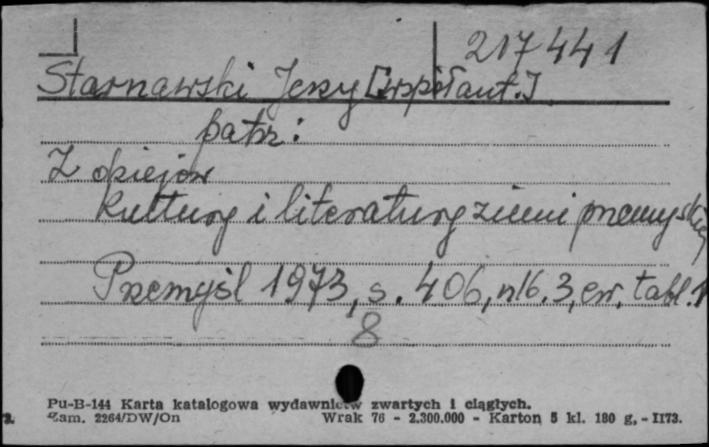 217441
Starnawski Jerzy [współaut.]
patrz:
Z dziejów
kultury i literatury ziemi przemyskiej
Przemyśl 1973, s. 406, nlb. 3, err. tabl. 1
8
Pu-B-144 Karta katalogowa wydawnictw zwartych i ciągłych.
Zam. 2264/DW/On Wrak 76 - 2.300.000 - Karton 5 kl. 180 g, - II73.